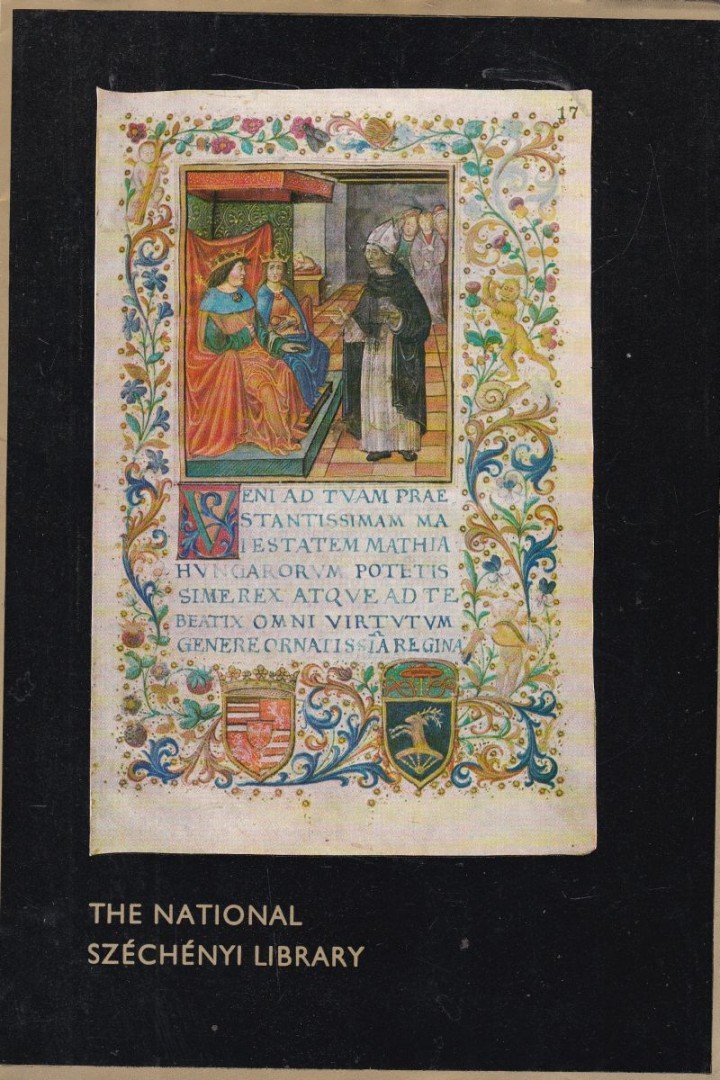 17
VENI AD TVAM PRAE
STANTISSIMAM MA
IESTATEM MATHIA
HVNGARORVM POTETIS
SIME REX ATQVE AD TE
BEATIX OMNI VIRTVTVM
GENERE ORNATISSIA REGINA
THE NATIONAL
SZÉCHÉNYI LIBRARY